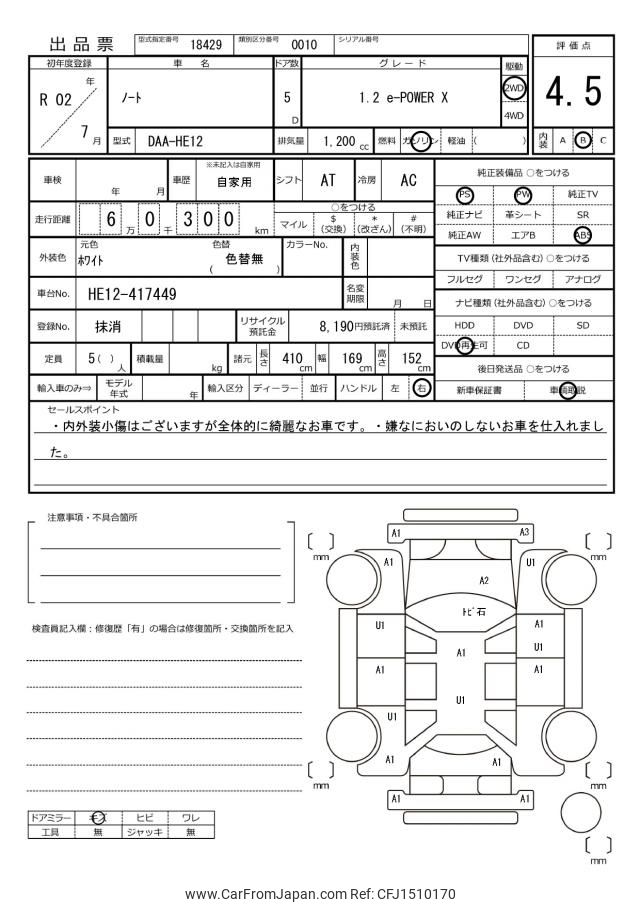 出品票 型式指定番号 18429 類別区分番号 0010 シリアル番号
評価点
4.5
内装 A B C
初年度登録 車名 ドア数 グレード 駆動
R 02 年 7 月 ノート 5 D 1.2 e-POWER X 2WD 4WD
型式 DAA-HE12 排気量 1,200 cc 燃料 ガソリン 軽油 ( )
車検 年 月 車歴 ※未記入は自家用 自家用 シフト AT 冷房 AC
走行距離 6 万 0 千 3 0 0 km
○をつける
マイル $ (交換) * (改ざん) # (不明)
外装色 元色 ホワイト 色替 ( 色替無 ) カラーNo. 内装色
車台No. HE12-417449 名変期限 月 日
登録No. 抹消 リサイクル預託金 8,190円預託済 未預託
定員 5 ( ) 人 積載量 kg 諸元 長さ 410 cm 幅 169 cm 高さ 152 cm
輸入車のみ⇒ モデル年式 年 輸入区分 ディーラー 並行 ハンドル 左 右
純正装備品 ○をつける
PS PW 純正TV
純正ナビ 革シート SR
純正AW エアB ABS
TV種類(社外品含む)○をつける
フルセグ ワンセグ アナログ
ナビ種類(社外品含む)○をつける
HDD DVD SD
DVD再生可 CD
後日発送品 ○をつける
新車保証書 車輌取説
セールスポイント
・内外装小傷はございますが全体的に綺麗なお車です。・嫌なにおいのしないお車を仕入れまし
た。
注意事項・不具合箇所
検査員記入欄：修復歴「有」の場合は修復箇所・交換箇所を記入
ドアミラー キズ ヒビ ワレ
工具 無 ジャッキ 無
A1 A3
mm mm
A1 U1
A2
トビ石
U1 A1
A1 U1
A1 A1
U1
U1
A1 A1
mm mm
A1 A1
mm
www.CarFromJapan.com Ref: CFJ1510170